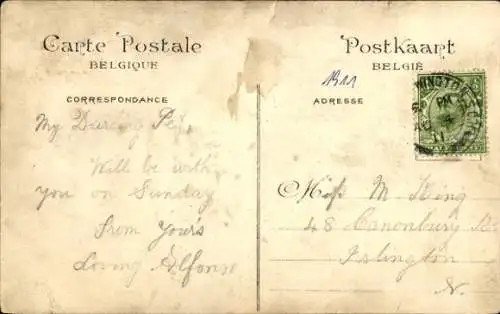 Carte Postale
BELGIQUE
CORRESPONDANCE
My Darling
Will be with
you on Sunday
From Yours
Loving Alfonso
Postkaart
BELGIË
1911
ADRESSE
Miss M King
48 Canonbury Rd
Islington
N.
PM
11